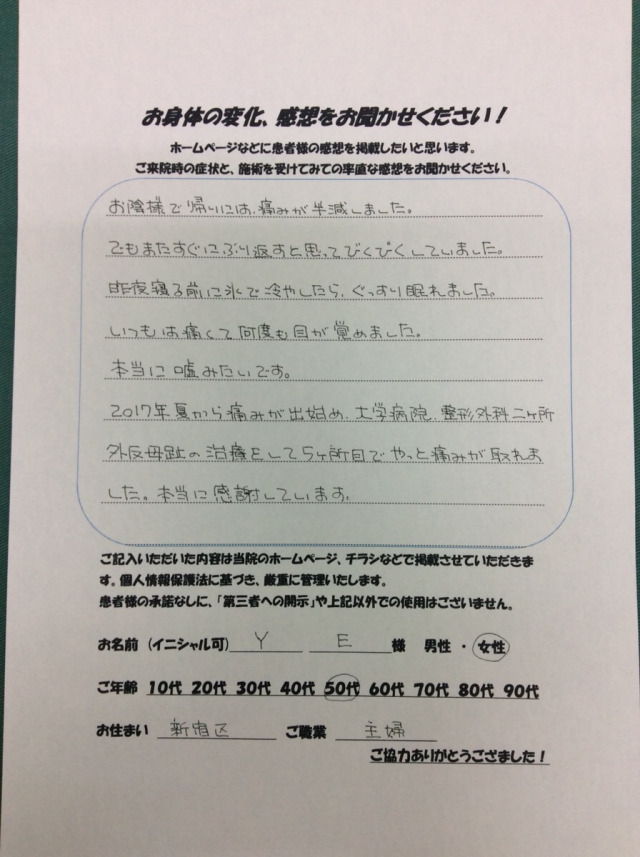 お身体の変化、感想をお聞かせください！
ホームページなどに患者様の感想を掲載したいと思います。
ご来院時の症状と、施術を受けてみての率直な感想をお聞かせください。
お陰様で帰りには、痛みが半減しました。
でもまたすぐにぶり返すと思ってびくびくしていました。
昨夜寝る前に氷で冷やしたら、ぐっすり眠れました。
いつもは痛くて何度も目が覚めました。
本当に嘘みたいです。
2017年夏から痛みが出始め、大学病院、整形外科二ヶ所
外反母趾の治療をして5ヶ所目でやっと痛みが取れま
した。本当に感謝しています。
ご記入いただいた内容は当院のホームページ、チラシなどで掲載させていただきま
す。個人情報保護法に基づき、厳重に管理いたします。
患者様の承諾なしに、「第三者への開示」や上記以外での使用はございません。
お名前（イニシャル可） Y E 様 男性・女性
ご年齢 10代 20代 30代 40代 50代 60代 70代 80代 90代
お住まい 新宿区 ご職業 主婦
ご協力ありがとうござました！